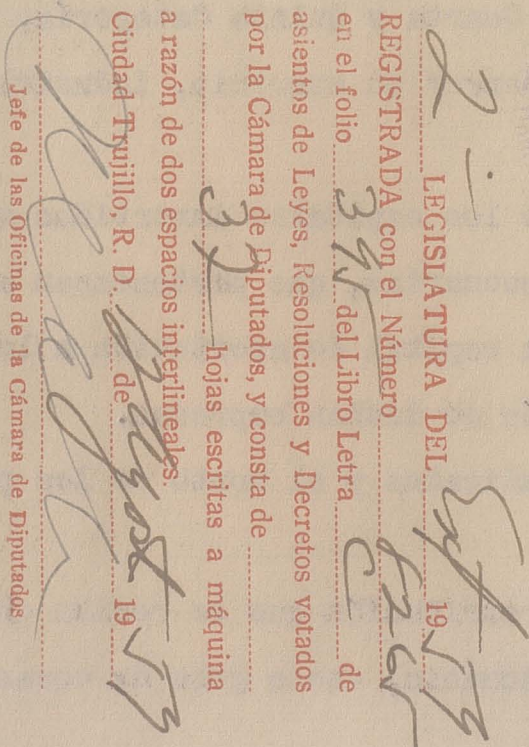 2
LEGISLATURA DEL Ext 1953
REGISTRADA con el Número 8265
en el folio 395 del Libro Letra C de
asientos de Leyes, Resoluciones y Decretos votados
por la Cámara de Diputados, y consta de
37 hojas escritas a máquina
a razón de dos espacios interlineales.
Ciudad Trujillo, R. D. de Agost 1953
Jefe de las Oficinas de la Cámara de Diputados